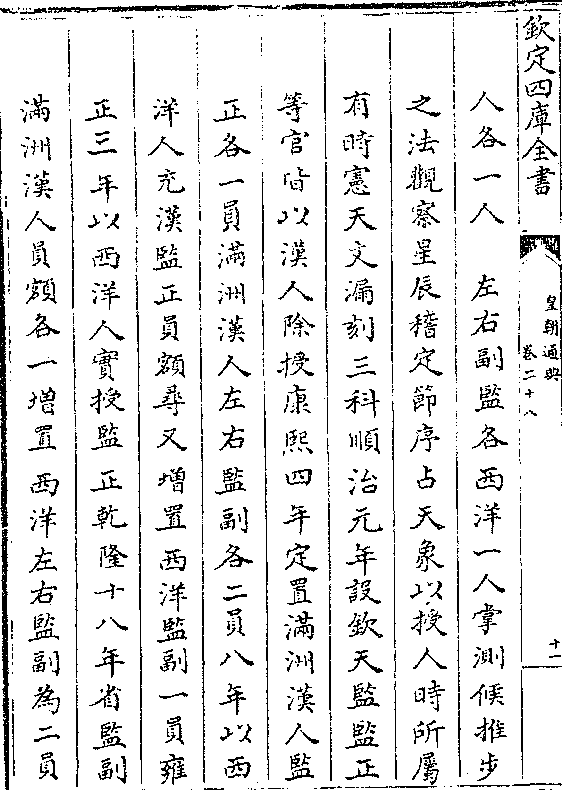 欽定四庫全書
皇朝通典
卷二十八
十一
人各一人　左右副監各西洋一人掌測候推步
之法觀察星辰稽定節序占天象以授人時所屬
有時憲天文漏刻三科順治元年設欽天監監正
等官皆以漢人除授康熙四年定置滿洲漢人監
正各一員滿洲漢人左右監副各二員八年以西
洋人充漢監正員額尋又增置西洋監副一員雍
正三年以西洋人實授監正乾隆十八年省監副
滿洲漢人員額各一增置西洋左右監副為二員